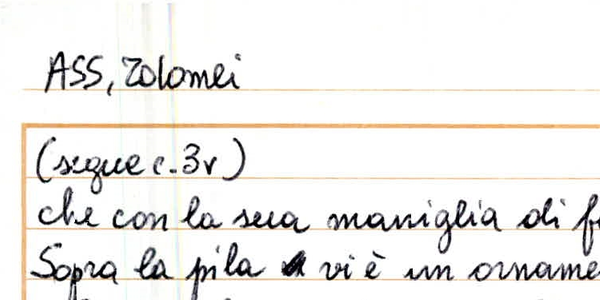 ASS, Tolomei
(segue c. 3r)
che con la sua maniglia di
Sopra la pila vi è un